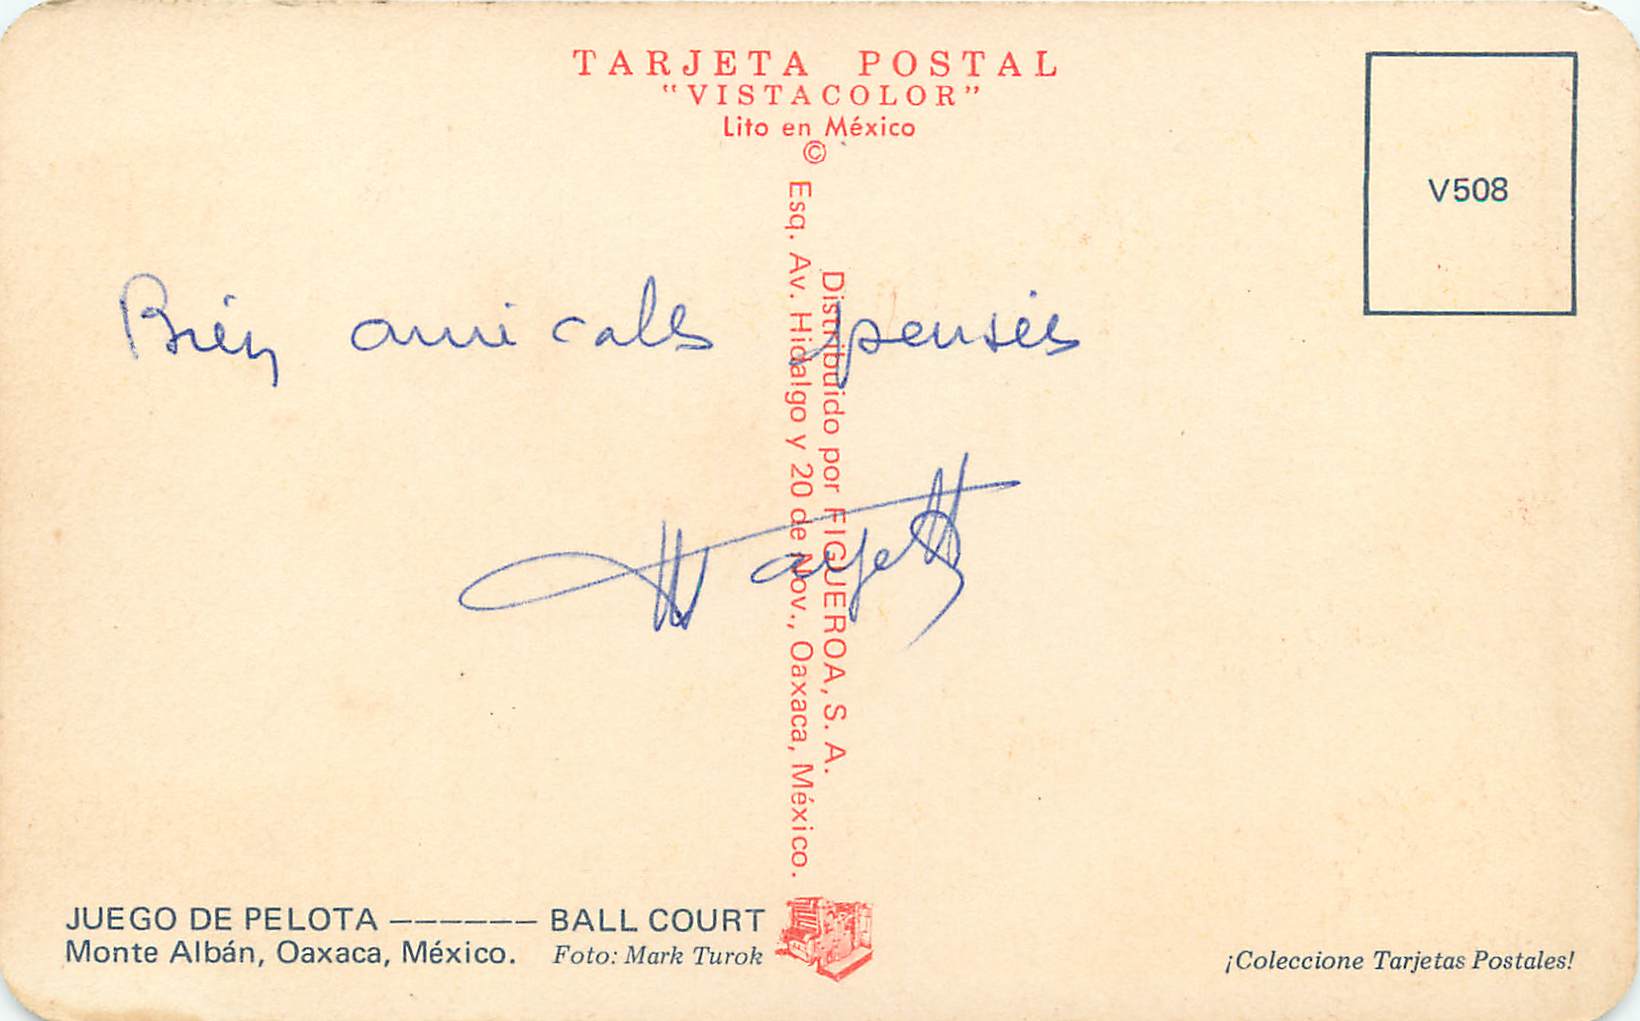 TARJETA POSTAL
"VISTACOLOR"
Lito en México
©
V508
Distribuido por FIGUEROA, S. A.
Esq. Av. Hidalgo y 20 de Nov., Oaxaca, México.
Bien amicales pensées
JUEGO DE PELOTA —————— BALL COURT
Monte Albán, Oaxaca, México. Foto: Mark Turok
¡Coleccione Tarjetas Postales!